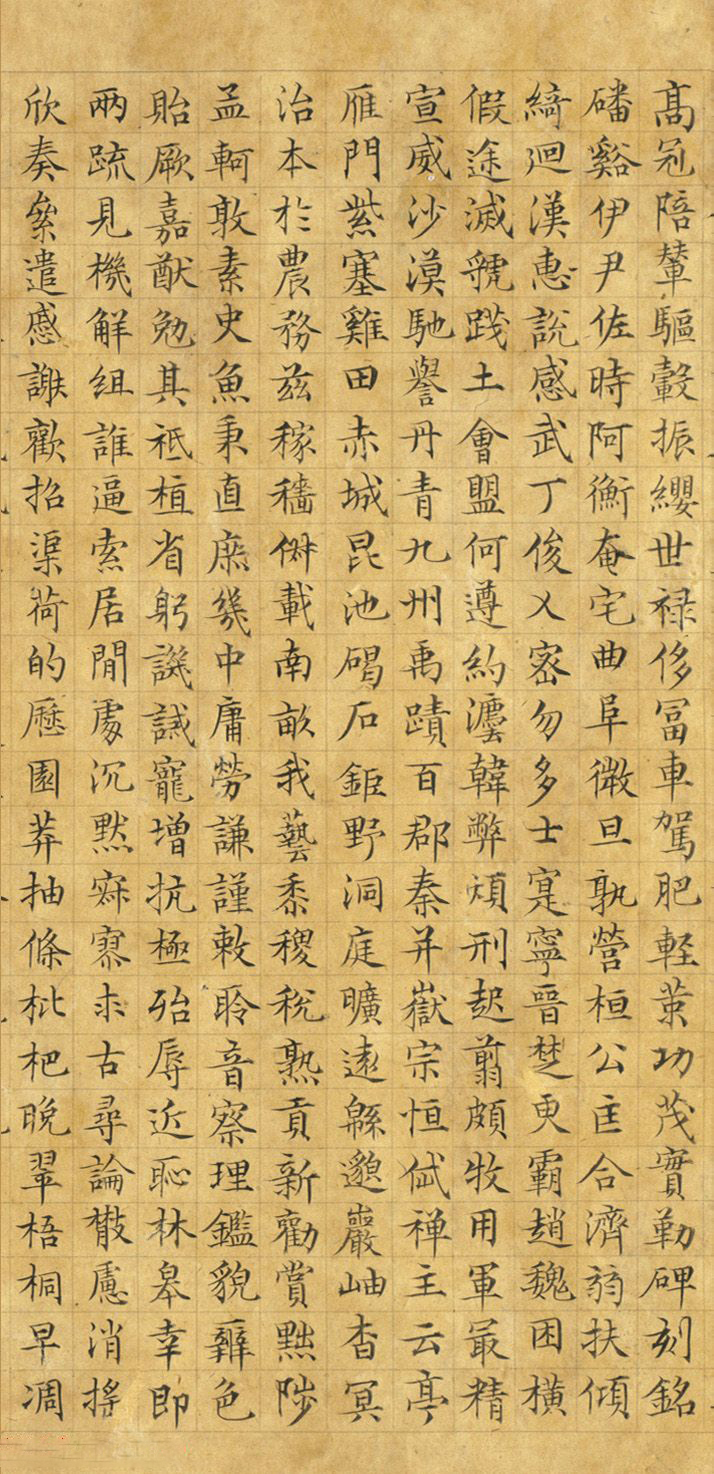 髙冠陪輦驅轂振纓世禄侈冨車駕肥軽茦功茂實勒碑刻銘
磻谿伊尹佐時阿衡奄宅曲阜微旦孰營桓公匡合濟弱扶傾
綺迴漢惠說感武丁俊乂密勿多士寔寧晉楚更霸趙魏困橫
假途滅虢踐土會盟何遵約灋韓弊煩刑起翦頗牧用軍最精
宣威沙漠馳譽丹青九州禹蹟百郡秦并嶽宗恒岱禪主云亭
雁門紫塞雞田赤城昆池碣石鉅野洞庭曠遠緜邈巖岫杳冥
治本於農務茲稼穡俶載南畝我藝黍稷稅熟貢新勸賞黜陟
孟軻敦素史魚秉直庶幾中庸勞謙謹敕聆音察理鑑貌辯色
貽厥嘉猷勉其祗植省躬譏誡寵增抗極殆辱近恥林皋幸即
兩疏見機解組誰逼索居閒處沉默寂寥求古尋論散慮消搖
欣奏累遣慼謝歡招渠荷的歷園莽抽條枇杷晚翠梧桐早凋